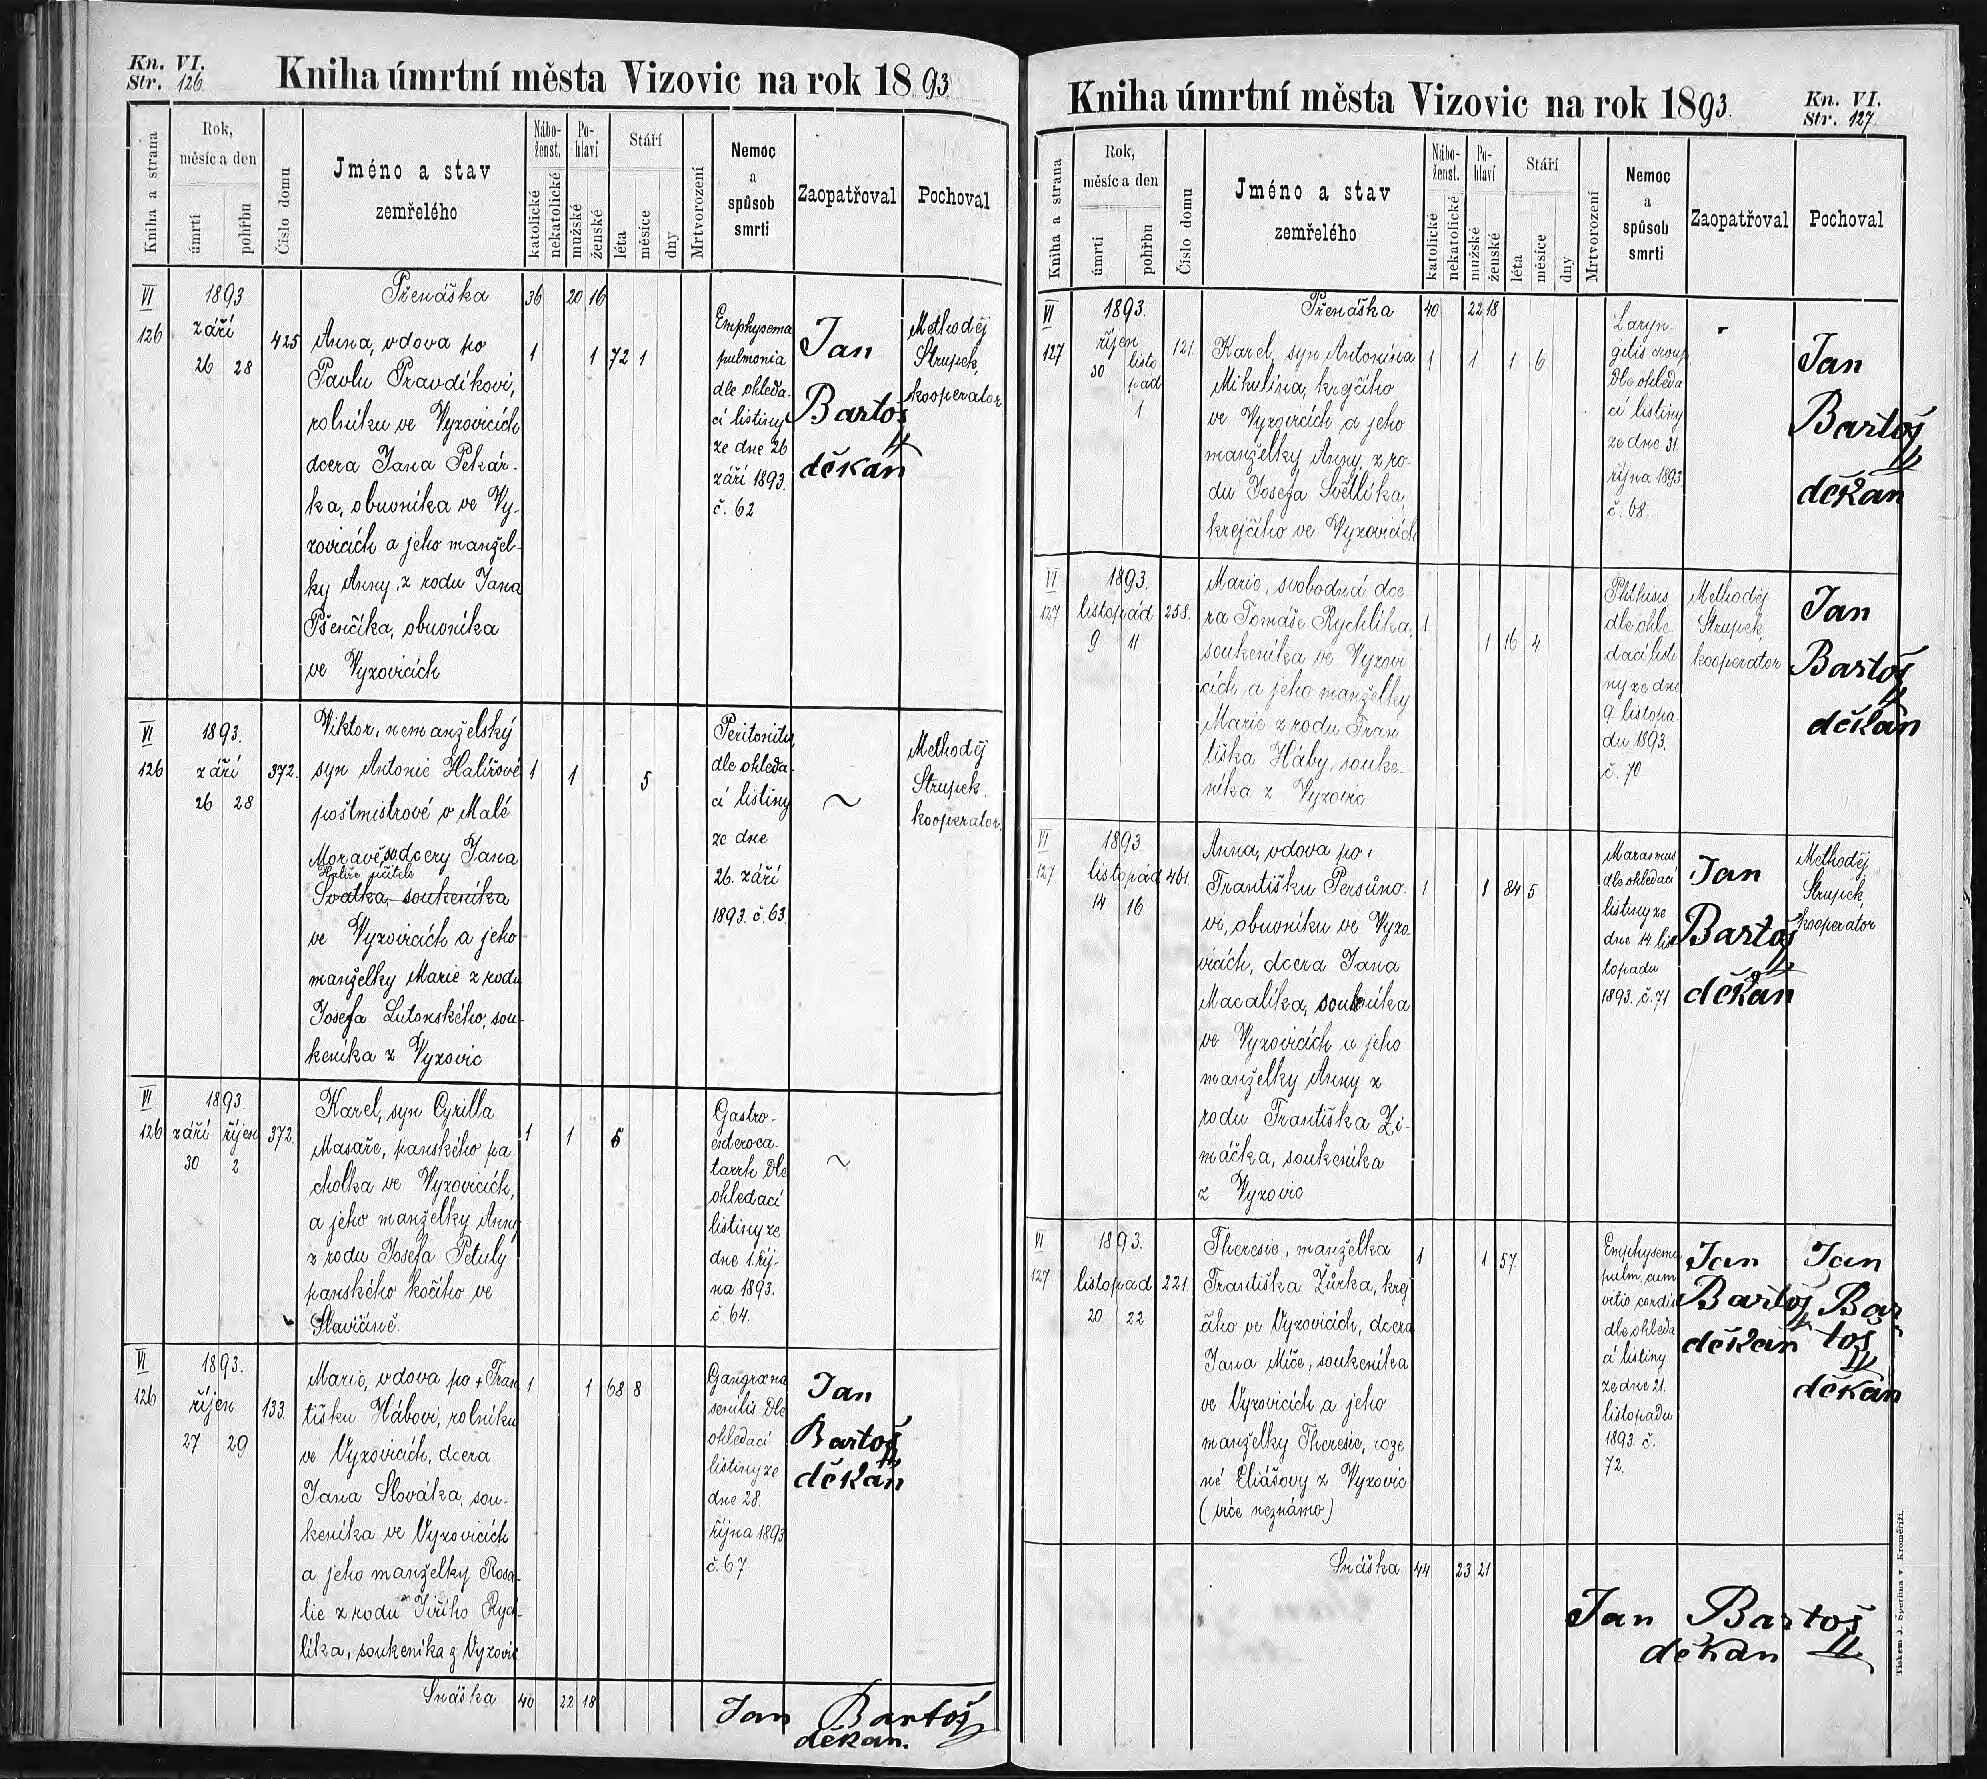 Kn. VI.
Str. 126
Kniha úmrtní města Vizovic na rok 1893
Kniha a strana
Rok,
měsíc a den
úmrtí
pohřbu
Číslo domu
Jméno a stav
zemřelého
Nábo-
ženst.
katolické
nekatolické
Po-
hlaví
mužské
ženské
Stáří
léta
měsíce
dny
Mrtvorození
Nemoc
a
spůsob
smrti
Zaopatřoval
Pochoval
Přenáška 36 20 16
VI
126
1893
září
26 28
425
Anna, vdova po
Pavlu Pravdíkovi,
rolníku ve Vyzovicích
dcera Jana Pekár-
ka, obuvníka ve Vy-
zovicích a jeho manžel-
ky Anny, z rodu Jana
Pšenčíka, obuvníka
ve Vyzovicích
1 1 72 1
Emphysema
pulmonia
dle ohleda-
cí listiny
ze dne 26
září 1893.
č. 62
Jan
Bartoš
děkan
Methoděj
Strupek,
kooperator
VI
126
1893.
září
26 28
372.
Viktor, nemanželský
syn Antonie Halířové
poštmistrové v Malé
Moravě, dcery Jana
Halíře učitele
Svatka, soukeníka
ve Vyzovicích a jeho
manželky Marie z rodu
Josefa Lutonského, sou-
keníka z Vyzovic
1 1 5
Peritonitis
dle ohleda-
cí listiny
ze dne
26. září
1893. č. 63.
~
Methoděj
Strupek.
kooperator.
VI
126
1893
září říjen
30 2
372.
Karel, syn Cyrilla
Masaře, panského pa
cholka ve Vyzovicích,
a jeho manželky Anny
z rodu Josefa Petuly
panského kočího ve
Slavičíně.
1 1 5
Gastro-
enteroca-
tarrh Dle
ohledací
listiny ze
dne 1. říj-
na 1893.
č. 64.
~
VI
126
1893.
říjen
27 29
133.
Marie, vdova po + Fran
tišku Hábovi, rolníku
ve Vyzovicích, dcera
Jana Slováka, sou-
keníka ve Vyzovicích
a jeho manželky Rosa-
lie z rodu Jiřího Rych-
líka, soukeníka z Vyzovic
1 1 68 8
Gangraena
senilis Dle
ohledací
listiny ze
dne 28.
října 1893
č. 67
Jan
Bartoš
děkan
Snáška 40 22 18
Jan Bartoš
děkan.
Kniha úmrtní města Vizovic na rok 1893.
Kn. VI.
Str. 127
Kniha a strana
Rok,
měsíc a den
úmrtí
pohřbu
Číslo domu
Jméno a stav
zemřelého
Nábo-
ženst.
katolické
nekatolické
Po-
hlaví
mužské
ženské
Stáří
léta
měsíce
dny
Mrtvorození
Nemoc
a
spůsob
smrti
Zaopatřoval
Pochoval
Přenáška 40 22 18
VI
127
1893.
říjen listo
30 pad
1
121.
Karel, syn Antonína
Mikulína, krejčího
ve Vyzovicích a jeho
manželky Anny, z ro-
du Josefa Světlíka,
krejčího ve Vyzovicích
1 1 1 6
Laryn-
gitis croup
Dle ohleda
cí listiny
ze dne 31.
října 1893
č. 68.
Jan
Bartoš
děkan
VI
127
1893.
listopad
9 11
258.
Marie, svobodná dce
ra Tomáše Rychlíka,
soukeníka ve Vyzovi
cích a jeho manželky
Marie z rodu Fran
tiška Háby, souke-
níka z Vyzovic
1 1 16 4
Phthisis
dle ohle
dací listi
ny ze dne
9. listopa
du 1893.
č. 70
Methoděj
Strupek,
kooperator
Jan
Bartoš
děkan
VI
127
1893
listopad
14 16
461.
Anna, vdova po +
Františku Persůno-
vi, obuvníku ve Vyzo
vicích, dcera Jana
Macalíka, soukeníka
ve Vyzovicích a jeho
manželky Anny z
rodu Františka Zi-
máčka, soukeníka
z Vyzovic
1 1 84 5
Marasmus
dle ohledací
listiny ze
dne 14. lis
topadu
1893. č. 71
Jan
Bartoš
děkan
Methoděj
Strupek,
kooperator
VI
127
1893.
listopad
20 22
221.
Theresie, manželka
Františka Žůrka, krej
čího ve Vyzovicích, dcera
Jana Míče, soukeníka
ve Vyzovicích a jeho
manželky Theresie, roze
né Eliášovy z Vyzovic
(více neznámo)
1 1 57
Emphysema
pulm. cum
vitio cordis
dle ohleda
cí listiny
ze dne 21.
listopadu
1893. č.
72.
Jan
Bartoš
děkan
Jan
Bar
toš
děkan
Snáška 44 23 21
Jan Bartoš
děkan
Tiskem J. Šperlína v Kroměříži.